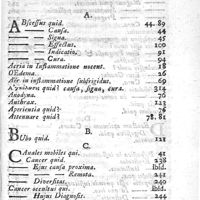 A.
ABscessus quid. 44. 89
Causa. 44
Signa. 45
Effectus. 100
Indicatio.
Cura. 94
Aeria in Inflammatione nocent. 98
OEdema. 26
Aër in inflammatione subfrigidus. 60
quid? causa, signa, cura. 314
Anodyna. 76
Anthrax. 113
Aperientia quid? 76
Attenuare quid? 78. 81
B.
BUbo quid. 112
C.
CAnales mobiles qui. 25
Cancer quid. 238
Ejus causa proxima. Ibid.
Remota. 241
Diversitas. 240
Cancer occultus qui. Ibid.
Hujus Diagnosis. 244